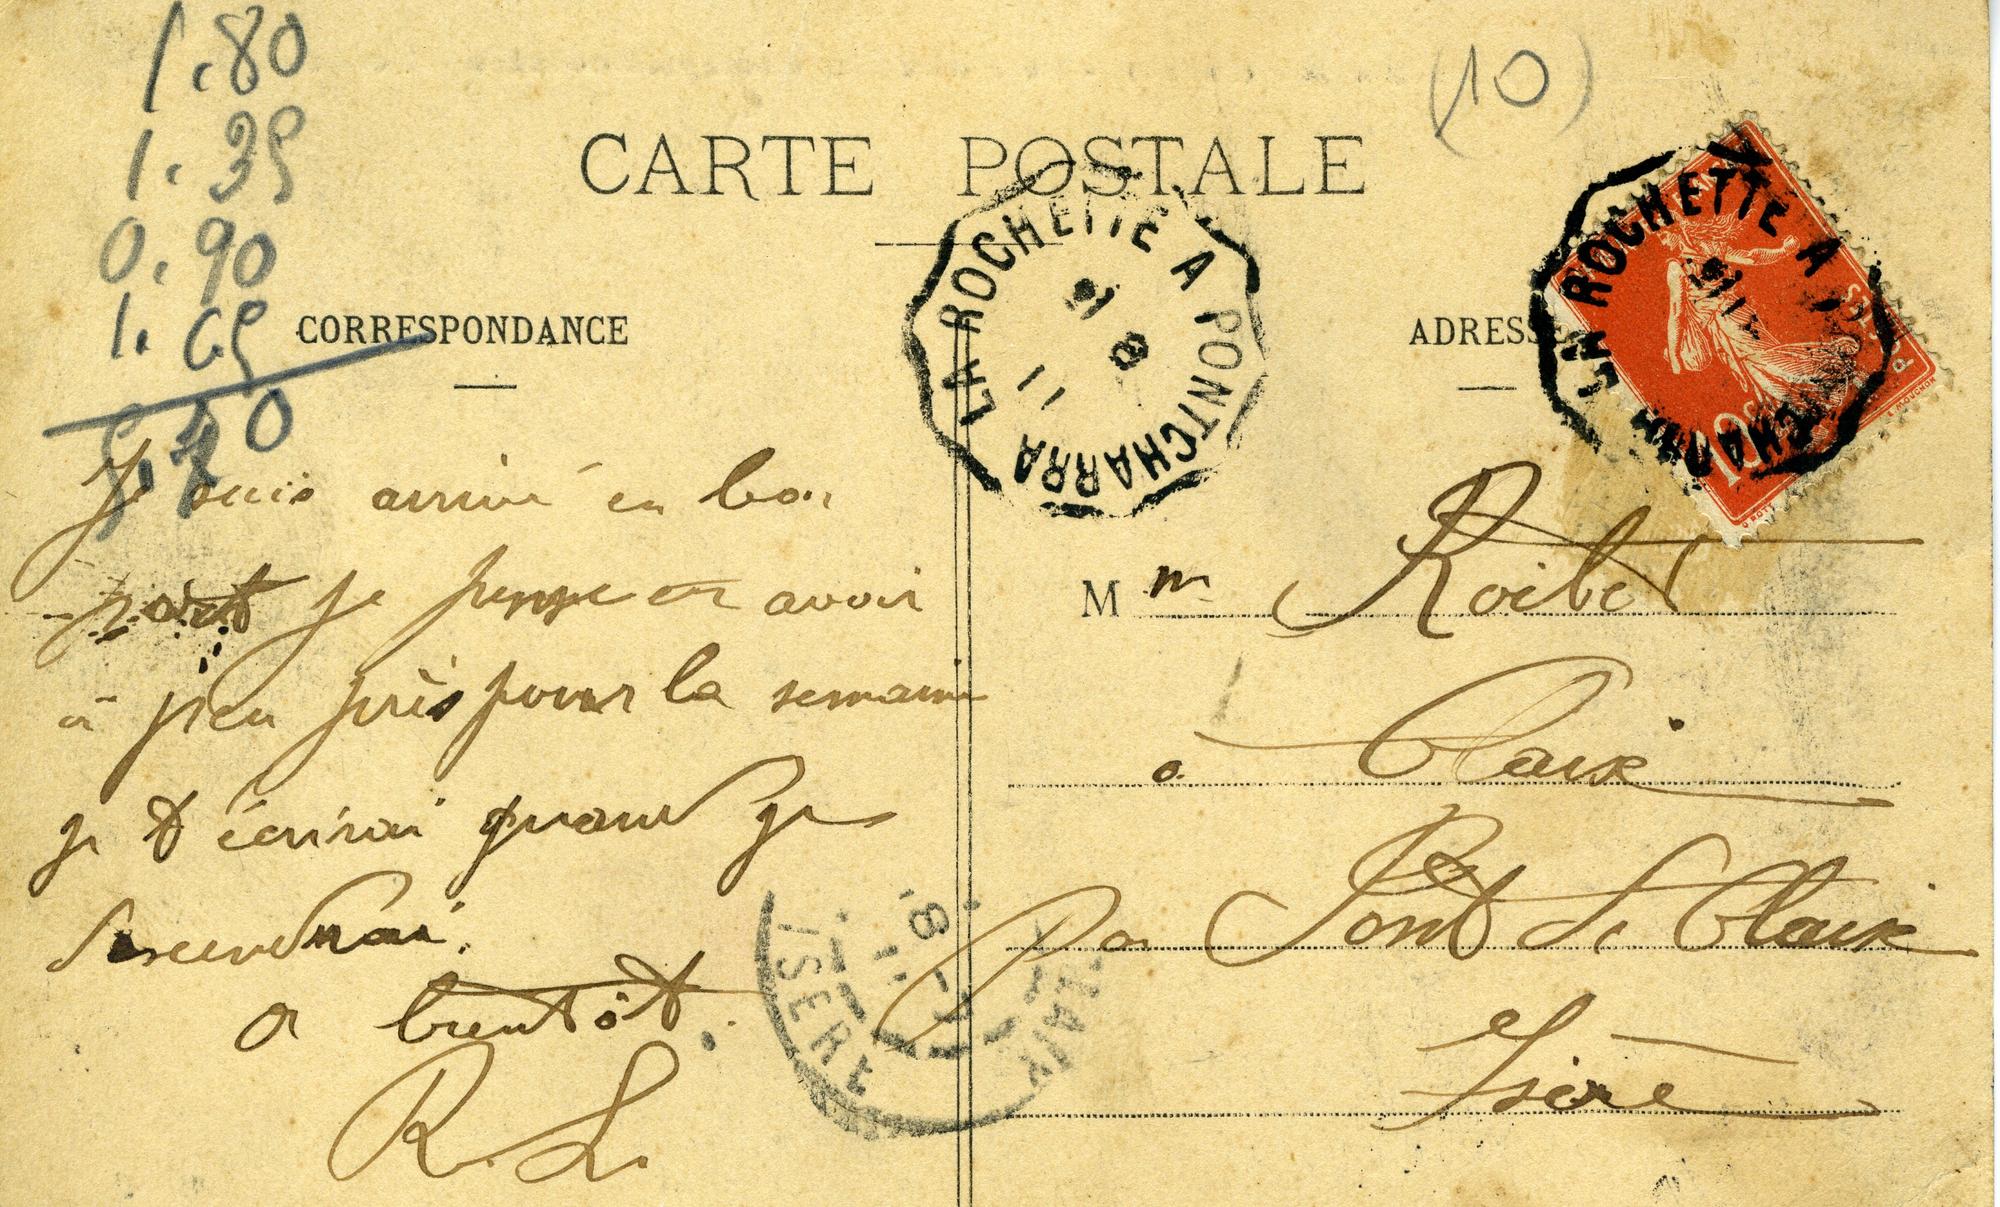 1.80
1.35
0.90
1.65
(10)
CARTE POSTALE
CORRESPONDANCE
ADRESSE
LA ROCHETTE A PONTCHARRA
8
11
LA ROCHETTE A
10
Je suis arrivé en bon
port je pense en avoir
à peu près pour la semaine
je t écrirai quand je
descendrai.
a bientôt.
R. L.
M m
à Claix
par Pont de Claix
Isère
ISERE